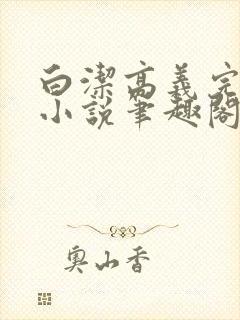 白潔高義完
小說筆趣閣
奧山香